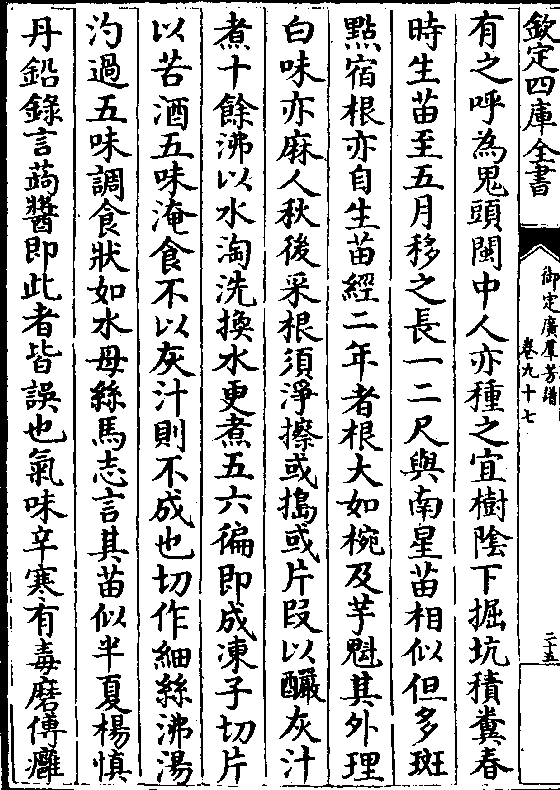 欽定四庫全書
御定廣羣芳譜
卷九十七
二十五
有之呼為鬼頭閩中人亦種之宜樹陰下掘坑積糞春
時生苗至五月移之長一二尺與南星苗相似但多斑
點宿根亦自生苗經二年者根大如椀及芋魁其外理
白味亦麻人秋後采根須淨擦或搗或片段以釅灰汁
煮十餘沸以水淘洗換水更煮五六徧即成凍子切片
以苦酒五味淹食不以灰汁則不成也切作細絲沸湯
汋過五味調食狀如水母絲馬志言其苗似半夏楊慎
丹鉛錄言蒟醬即此者皆誤也氣味辛寒有毒磨傅癰